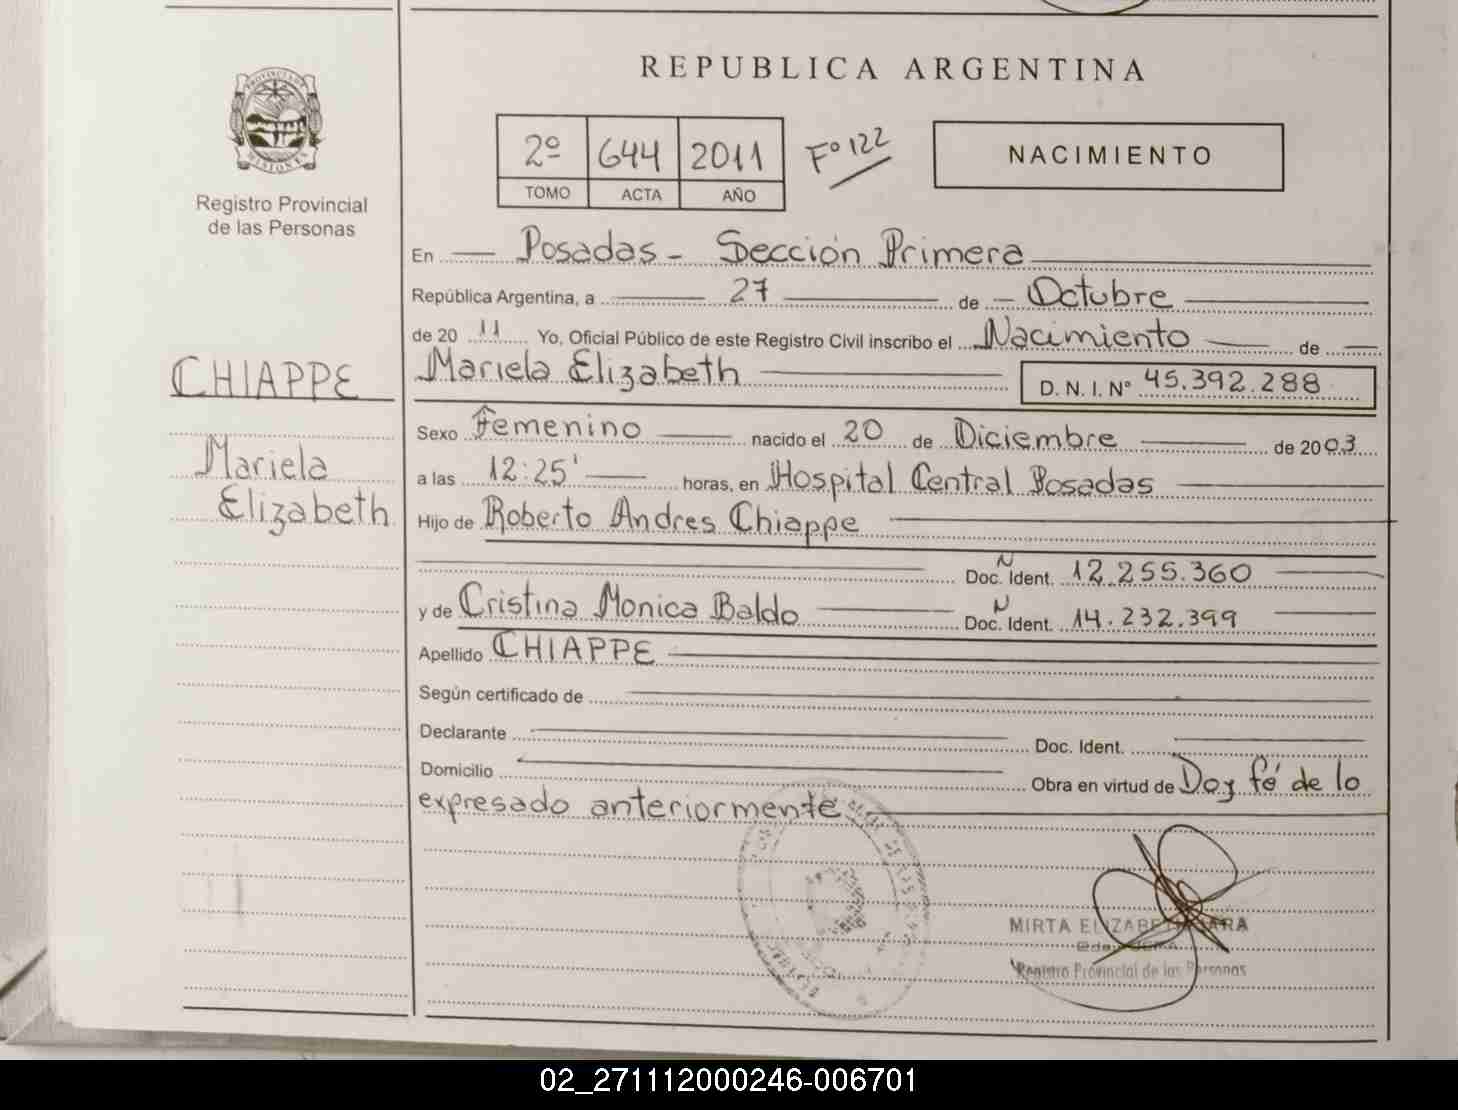 REPUBLICA ARGENTINA
PROVINCIA DE MISIONES
Registro Provincial
de las Personas
2º 644 2011 Fº 122
TOMO ACTA AÑO
NACIMIENTO
En Posadas - Sección Primera
República Argentina, a 27 de Octubre
de 20 11 Yo, Oficial Público de este Registro Civil inscribo el Nacimiento de
Mariela Elizabeth D. N. I. Nº 45.392.288
CHIAPPE
Mariela
Elizabeth
Sexo Femenino nacido el 20 de Diciembre de 2003
a las 12:25' horas, en Hospital Central Posadas
Hijo de Roberto Andres Chiappe
N
Doc. Ident. 12.255.360
y de Cristina Monica Baldo N Doc. Ident. 14.232.399
Apellido CHIAPPE
Según certificado de
Declarante Doc. Ident.
Domicilio Obra en virtud de Doy fé de lo
expresado anteriormente
MIRTA
Registro Provincial de las Personas
02_271112000246-006701